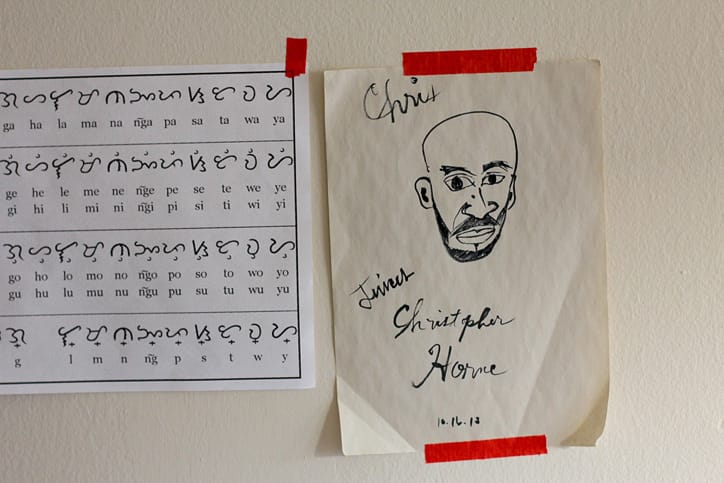 ᜄ ᜑ ᜎ ᜋ ᜈ ᜅ ᜉ ᜐ ᜆ ᜏ ᜌ
ga ha la ma na n͠ga pa sa ta wa ya
ᜄᜒ ᜑᜒ ᜎᜒ ᜋᜒ ᜈᜒ ᜅᜒ ᜉᜒ ᜐᜒ ᜆᜒ ᜏᜒ ᜌᜒ
ge he le me ne n͠ge pe se te we ye
gi hi li mi ni n͠gi pi si ti wi yi
ᜄᜓ ᜑᜓ ᜎᜓ ᜋᜓ ᜈᜓ ᜅᜓ ᜉᜓ ᜐᜓ ᜆᜓ ᜏᜓ ᜌᜓ
go ho lo mo no n͠go po so to wo yo
gu hu lu mu nu n͠gu pu su tu wu yu
ᜄ᜔ ᜎ᜔ ᜋ᜔ ᜈ᜔ ᜅ᜔ ᜉ᜔ ᜐ᜔ ᜆ᜔ ᜏ᜔ ᜌ᜔
g l m n n͠g p s t w y
Chris
Christpher
Horne
10.16.13